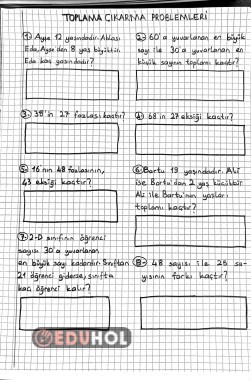 TOPLAMA ÇIKARMA PROBLEMLERİ
1-) Ayşe 12 yaşındadır. Ablası
Eda, Ayşe'den 8 yaş büyüktür.
Eda kaç yaşındadır?
2-) 60'a yuvarlanan en büyük
sayı ile 30'a yuvarlanan en
küçük sayının toplamı kaçtır?
3-) 38'in 27 fazlası kaçtır?
4-) 68'in 27 eksiği kaçtır?
5-) 16'nın 48 fazlasının,
43 eksiği kaçtır?
6-) Bartu 19 yaşındadır. Ali
ise Bartu'dan 2 yaş küçüktür.
Ali ile Bartu'nun yaşları
toplamı kaçtır?
7-) 2-D sınıfının öğrenci
sayısı 30'a yuvarlanan
en büyük sayı kadardır. Sınıftan
21 öğrenci giderse, sınıfta
kaç öğrenci kalır?
8-) 48 sayısı ile 25 sa-
yısının farkı kaçtır?
EDUHOL